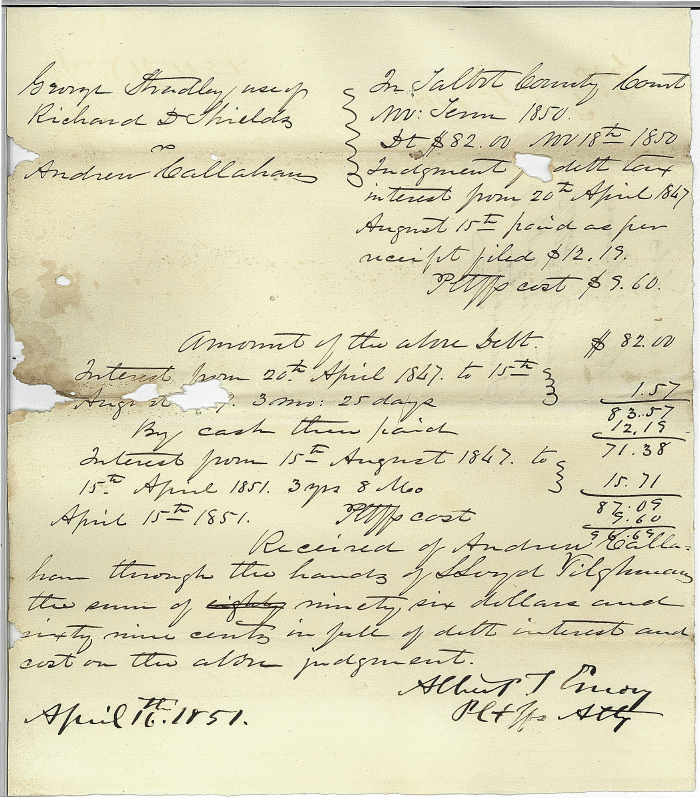 George Stradley use of
Richard D Shields
vs
Andrew Callahan
In Talbot County Court
Nov: Term 1850.
Dt $82.00 Nov 18th 1850
Judgment debt tax
interest from 20th April 1847
August 15th paid as per
receipt filed $12.19.
Pltffs cost $9.60.
Amount of the above Debt $ 82.00
Interest from 20th April 1847. to 15th
August 3 mo: 25 days 1.57
83.57
By cash then paid 12.19
71.38
Interest from 15th August 1847. to
15th April 1851. 3 yrs 8 Mo 15.71
87.09
April 15th 1851. Pltffs cost 9.60
96.69
Received of Andrew Calla-
han through the hands of Lloyd Tilghman
the sum of eighty ninety six dollars and
sixty nine cents in full of debt interest and
cost on the above judgment.
Albert T Emory
Pltffs Atty
April 16th 1851.